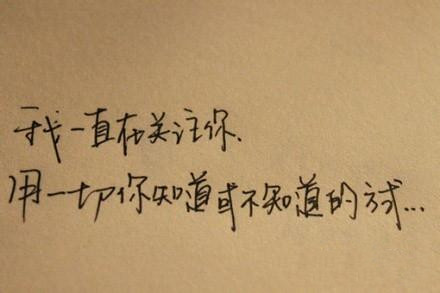 我一直在关注你、
用一切你知道或不知道的方式...